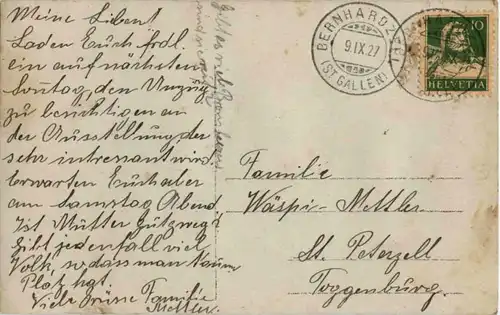 Meine Lieben!
Laden Euch frdl.
ein auf nächsten
Sonntag, den Umzug
zu besichtigen an
der Ausstellung, der
sehr intressant wird.
erwarten Euch aber
am Samstag Abend
Ist Mutter gut zweg?
Gibt jedenfall viel
Volk, so dass man kaum
Platz hat.
Viele Grüsse Familie
Mettler.
BERNHARDZELL
9.IX.27
(ST. GALLEN)
10
HELVETIA
Familie
Wäspi-Mettler
St. Peterzell
Toggenburg.